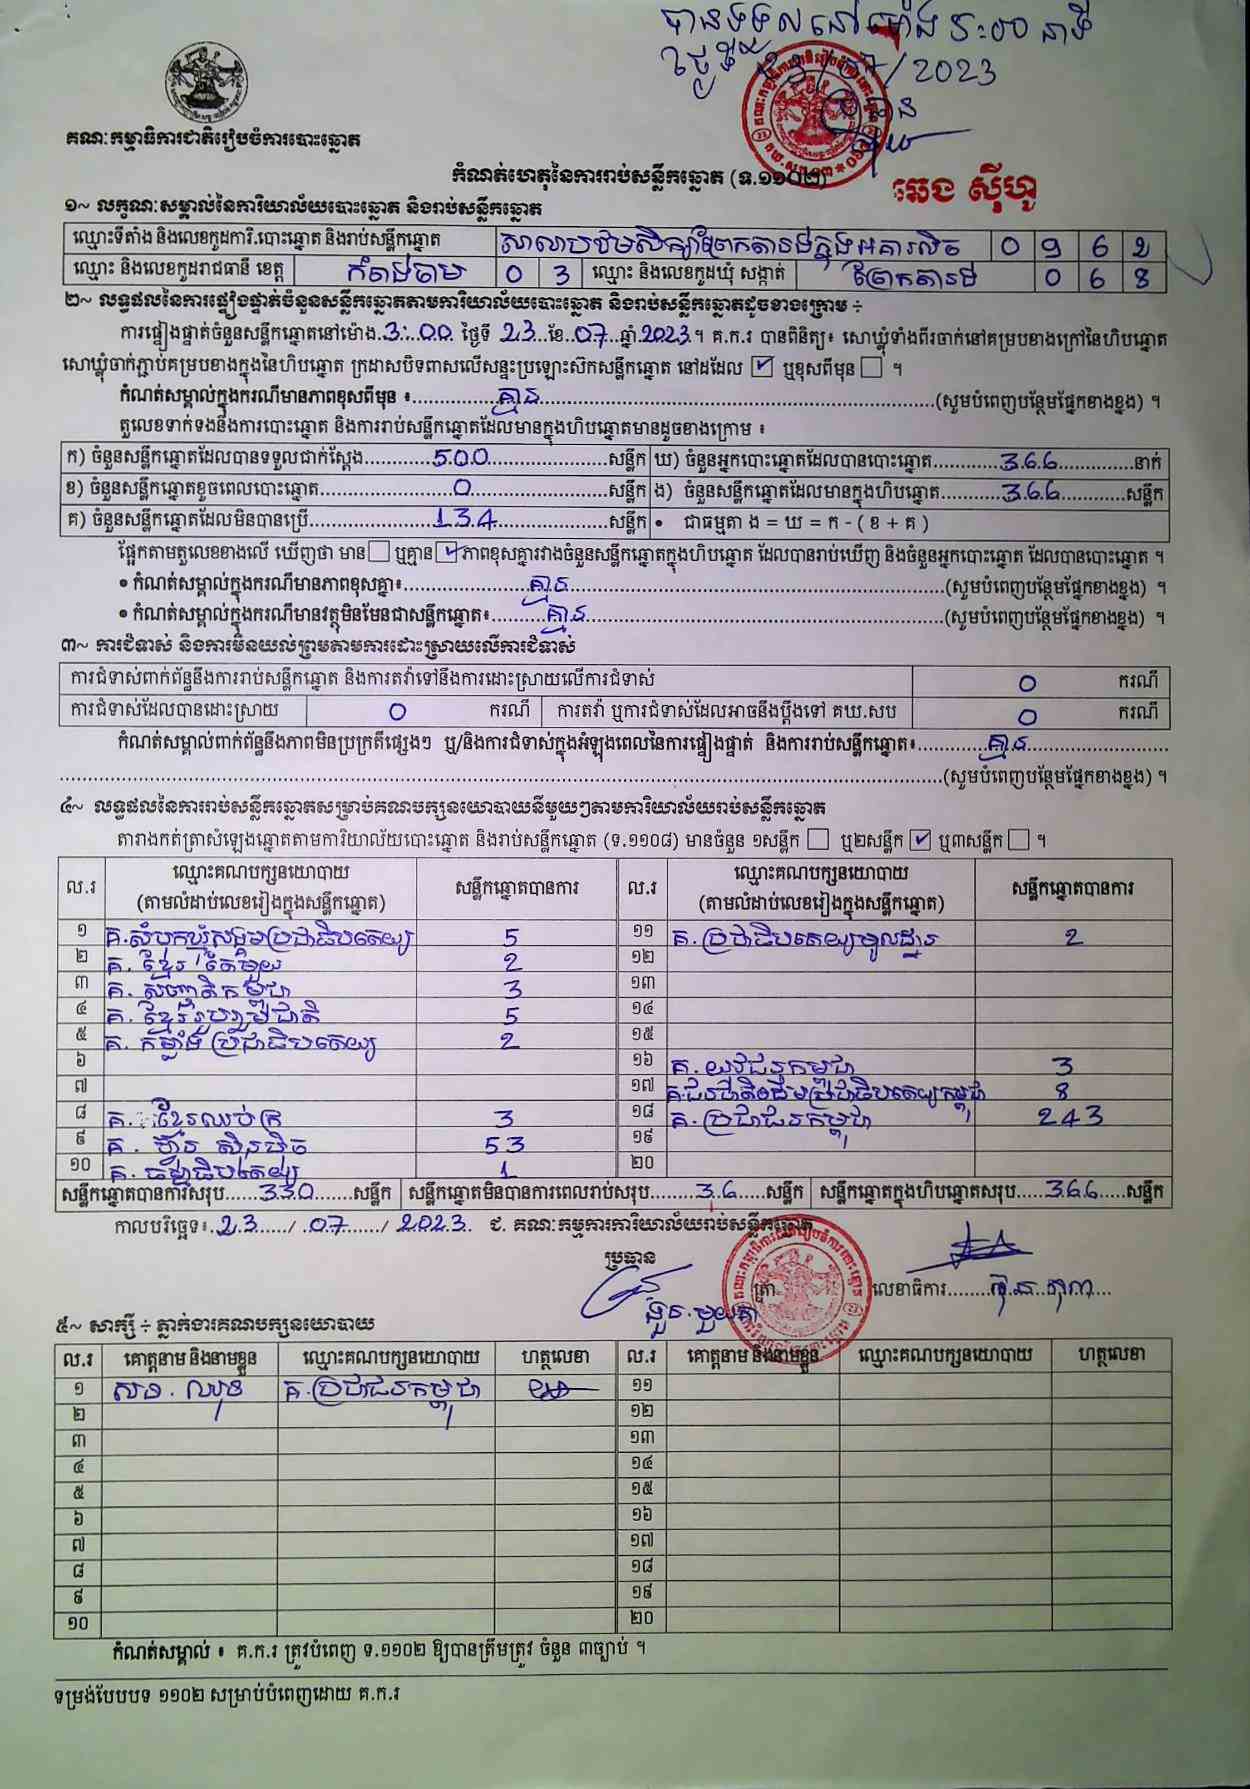 បានទទួលនៅម៉ោង ៖00 នាទី
ថ្ងៃទី 23/07/2023
ប្រធាន
គណៈកម្មាធិការជាតិរៀបចំការបោះឆ្នោត
កំណត់ហេតុនៃការរាប់សន្លឹកឆ្នោត (ទ.១១០២)
ឆេង ស៊ីហូ
១~ លក្ខណៈសម្គាល់នៃការិយាល័យបោះឆ្នោត និងរាប់សន្លឹកឆ្នោត
ឈ្មោះទីតាំង និងលេខកូដការិ.បោះឆ្នោត និងរាប់សន្លឹកឆ្នោត សាលាបឋមសិក្សាព្រែកតានង់ក្នុង អគារលិច 0 9 6 2
ឈ្មោះ និងលេខកូដរាជធានី ខេត្ត កំពង់ចាម 0 3 ឈ្មោះ និងលេខកូដឃុំ សង្កាត់ ព្រែកតានង់ 0 6 8
២~ លទ្ធផលនៃការផ្ទៀងផ្ទាត់ចំនួនសន្លឹកឆ្នោតតាមការិយាល័យបោះឆ្នោត និងរាប់សន្លឹកឆ្នោតដូចខាងក្រោម ÷
ការផ្ទៀងផ្ទាត់ចំនួនសន្លឹកឆ្នោតនៅម៉ោង 3:00 ថ្ងៃទី 23 ខែ 07 ឆ្នាំ 2023 ។ គ.ក.រ បានពិនិត្យ៖ សោឃ្លុំទាំងពីរចាក់នៅគម្របខាងក្រៅនៃហិបឆ្នោត
សោឃ្លុំចាក់ភ្ជាប់គម្របខាងក្នុងនៃហិបឆ្នោត ក្រដាសបិទពាសលើសន្ទះប្រឡោះស៊កសន្លឹកឆ្នោត នៅដដែល ☑ ឬខុសពីមុន ☐ ។
កំណត់សម្គាល់ក្នុងករណីមានភាពខុសពីមុន ៖ គ្មាន (សូមបំពេញបន្ថែមផ្នែកខាងខ្នង) ។
តួលេខទាក់ទងនឹងការបោះឆ្នោត និងការរាប់សន្លឹកឆ្នោតដែលមានក្នុងហិបឆ្នោតមានដូចខាងក្រោម ៖
ក) ចំនួនសន្លឹកឆ្នោតដែលបានទទួលជាក់ស្តែង 500 សន្លឹក ឃ) ចំនួនអ្នកបោះឆ្នោតដែលបានបោះឆ្នោត 366 នាក់
ខ) ចំនួនសន្លឹកឆ្នោតខូចពេលបោះឆ្នោត 0 សន្លឹក ង) ចំនួនសន្លឹកឆ្នោតដែលមានក្នុងហិបឆ្នោត 366 សន្លឹក
គ) ចំនួនសន្លឹកឆ្នោតដែលមិនបានប្រើ 134 សន្លឹក • ជាធម្មតា ង = ឃ = ក - ( ខ + គ )
ផ្អែកតាមតួលេខខាងលើ ឃើញថា មាន ☐ ឬគ្មាន ☑ ភាពខុសគ្នារវាងចំនួនសន្លឹកឆ្នោតក្នុងហិបឆ្នោត ដែលបានរាប់ឃើញ និងចំនួនអ្នកបោះឆ្នោត ដែលបានបោះឆ្នោត ។
• កំណត់សម្គាល់ក្នុងករណីមានភាពខុសគ្នា៖ គ្មាន (សូមបំពេញបន្ថែមផ្នែកខាងខ្នង) ។
• កំណត់សម្គាល់ក្នុងករណីមានវត្ថុមិនមែនជាសន្លឹកឆ្នោត៖ គ្មាន (សូមបំពេញបន្ថែមផ្នែកខាងខ្នង) ។
៣~ ការជំទាស់ និងការមិនយល់ព្រមតាមការដោះស្រាយលើការជំទាស់
ការជំទាស់ពាក់ព័ន្ធនឹងការរាប់សន្លឹកឆ្នោត និងការតវ៉ាទៅនឹងការដោះស្រាយលើការជំទាស់ 0 ករណី
ការជំទាស់ដែលបានដោះស្រាយ 0 ករណី ការតវ៉ា ឬការជំទាស់ដែលអាចនឹងប្តឹងទៅ គឃ.សប 0 ករណី
កំណត់សម្គាល់ពាក់ព័ន្ធនឹងភាពមិនប្រក្រតីផ្សេងៗ ឬ/និងការជំទាស់ក្នុងអំឡុងពេលនៃការផ្ទៀងផ្ទាត់ និងការរាប់សន្លឹកឆ្នោត៖ គ្មាន
(សូមបំពេញបន្ថែមផ្នែកខាងខ្នង) ។
៤~ លទ្ធផលនៃការរាប់សន្លឹកឆ្នោតសម្រាប់គណបក្សនយោបាយនីមួយៗតាមការិយាល័យរាប់សន្លឹកឆ្នោត
តារាងកត់ត្រាសំឡេងឆ្នោតតាមការិយាល័យបោះឆ្នោត និងរាប់សន្លឹកឆ្នោត (ទ.១១០៨) មានចំនួន ១សន្លឹក ☐ ឬ២សន្លឹក ☑ ឬ៣សន្លឹក ☐ ។
ល.រ ឈ្មោះគណបក្សនយោបាយ (តាមលំដាប់លេខរៀងក្នុងសន្លឹកឆ្នោត) សន្លឹកឆ្នោតបានការ ល.រ ឈ្មោះគណបក្សនយោបាយ (តាមលំដាប់លេខរៀងក្នុងសន្លឹកឆ្នោត) សន្លឹកឆ្នោតបានការ
១ គ.សំបុកឃ្មុំសង្គមប្រជាធិបតេយ្យ 5 ១១ គ.ប្រជាធិបតេយ្យមូលដ្ឋាន 2
២ គ. ខ្មែរតែមួយ 2 ១២
៣ គ. សញ្ជាតិកម្ពុជា 3 ១៣
៤ គ. ខ្មែររួបរួមជាតិ 5 ១៤
៥ គ. កម្លាំងប្រជាធិបតេយ្យ 2 ១៥
៦ ១៦ គ. យុវជនកម្ពុជា 3
៧ ១៧ គ.ជនជាតិដើមប្រជាធិបតេយ្យកម្ពុជា 8
៨ គ. ខ្មែរឈប់ក្រ 3 ១៨ គ.ប្រជាជនកម្ពុជា 243
៩ គ. ហ៊្វុនស៊ិនប៉ិច 53 ១៩
១០ គ. ធម្មាធិបតេយ្យ 1 ២០
សន្លឹកឆ្នោតបានការសរុប 330 សន្លឹក សន្លឹកឆ្នោតមិនបានការពេលរាប់សរុប 36 សន្លឹក សន្លឹកឆ្នោតក្នុងហិបឆ្នោតសរុប 366 សន្លឹក
កាលបរិច្ឆេទ៖ 23 / 07 / 2023 ជ. គណៈកម្មការការិយាល័យរាប់សន្លឹកឆ្នោត
ប្រធាន
ត្រា លេខាធិការ
៥~ សាក្សី ÷ ភ្នាក់ងារគណបក្សនយោបាយ
ល.រ គោត្តនាម និងនាមខ្លួន ឈ្មោះគណបក្សនយោបាយ ហត្ថលេខា ល.រ គោត្តនាម និងនាមខ្លួន ឈ្មោះគណបក្សនយោបាយ ហត្ថលេខា
១ សន. ឈុន គ.ប្រជាជនកម្ពុជា ១១
២ ១២
៣ ១៣
៤ ១៤
៥ ១៥
៦ ១៦
៧ ១៧
៨ ១៨
៩ ១៩
១០ ២០
កំណត់សម្គាល់ ៖ គ.ក.រ ត្រូវបំពេញ ទ.១១០២ ឱ្យបានត្រឹមត្រូវ ចំនួន ៣ច្បាប់ ។
ទម្រង់បែបបទ ១១០២ សម្រាប់បំពេញដោយ គ.ក.រ